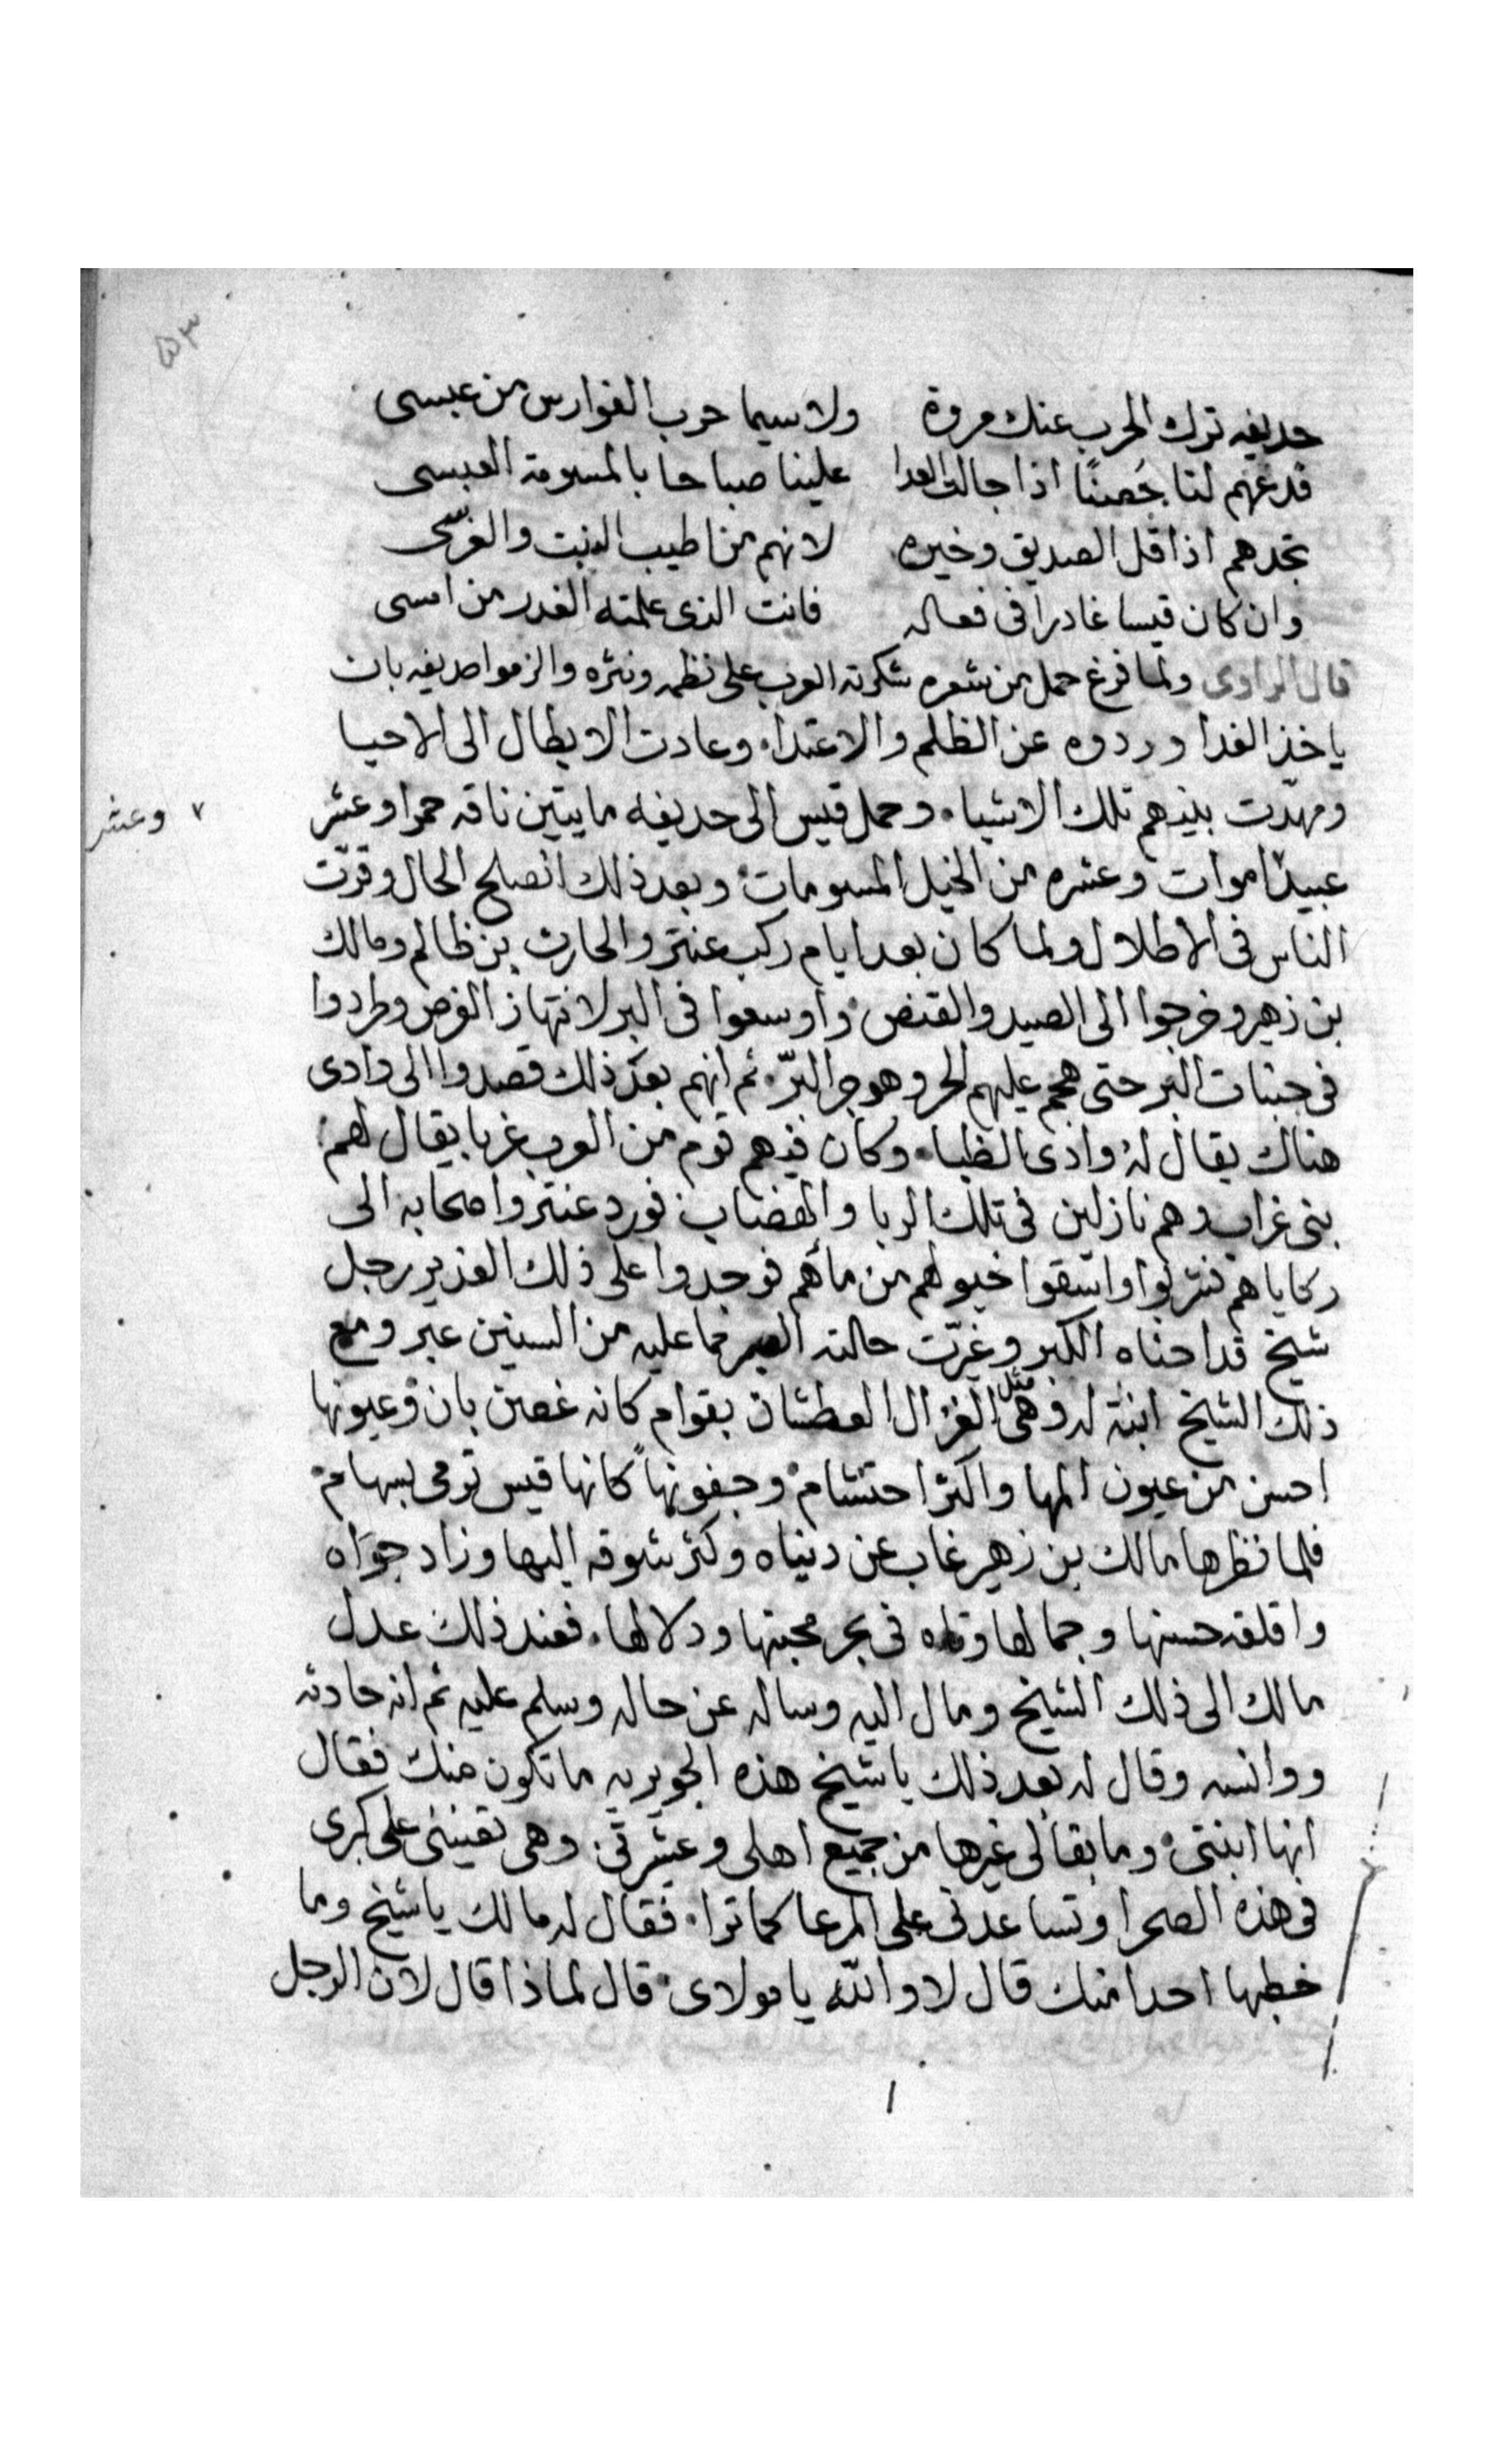 ٥٣
حديفه ترك الحرب عنك مروة ولا سيما حرب الفوارس من عبسى
فدعهم لنا حُصنًا اذا جالت العدا علينا صباحا بالمسومة العبسى
تجدهم اذا قل الصديق وخيره لانهم من اطيب النبت والغرسى
وان كان قيسا غادرا فى فعاله فانت الذى علمته الغدر من امسى
قال الراوى ولما فرغ حمل من شعره شكرته العرب على نظمه ونثره والزموا حديفه بان
ياخذ الفدا وردوه عن الظلم والاعتدا. وعادت الابطال الى الاحيا
ومهدّت بينهم تلك الاشياء. وحمل قيس الى حديفه مايتين ناقه حمرا وعشر
٧ وعشر
عبيدًا موات وعشره من الخيل المسومات. وبعد ذلك انصلح الحال وقرّت
الناس فى الاطلال ولما كان بعد ايام ركب عنتر والحارث بن ظالم ومالك
بن زهير وخرجوا الى الصيد والقنص. واوسعوا فى البر لانتهاز الفرص وطردوا
فى جنبات البر حتى هجم عليهم الحر وهوجر البرّ. ثم انهم بعد ذلك قصدوا الى وادى
هناك يقال لهُ وادى الظبا. وكان فيهم قوم من العرب غربا يقال لهم
بنى غراب وهم نازلين فى تلك الربا والهضاب فورد عنتر واصحابه الى
ركاياهم فنزلوا واسقوا خيولهم من مائهم فوجدوا على ذلك الغدير رجل
شيخ قد احناه الكبر وغيّرت حالته العبر مما عليه من السنين عبر ومع
ذلك الشيخ ابنة له وهى مثل الغزال العطشان بقوام كانه غصن بان وعيونها
احسن من عيون المها واكثر احتشام. وجفونها كانها قيس ترمى بسهام.
فلما نظرها مالك بن زهير غاب عن دنياه وكثر شوقه اليها وزاد جوَاه
واقلقه حسنها وجمالها وتاه فى بحر محبتها ودلالها. فعند ذلك عدل
مالك الى ذلك الشيخ ومال اليه وساله عن حاله وسلم عليه ثم انه حادثه
ووانسه وقال له بعد ذلك يا شيخ هذه الجويريه ما تكون منك فقال
انها ابنتى. وما بقا لى غيرها من جميع اهلى وعشرتى. وهى تعيننى على كبرى
فى هذه الصحرا وتساعدنى على المرعا كما ترا. فقال له مالك يا شيخ وما
خطبها احدا منك قال لا والله يا مولاى. قال لماذا قال لان الرجل